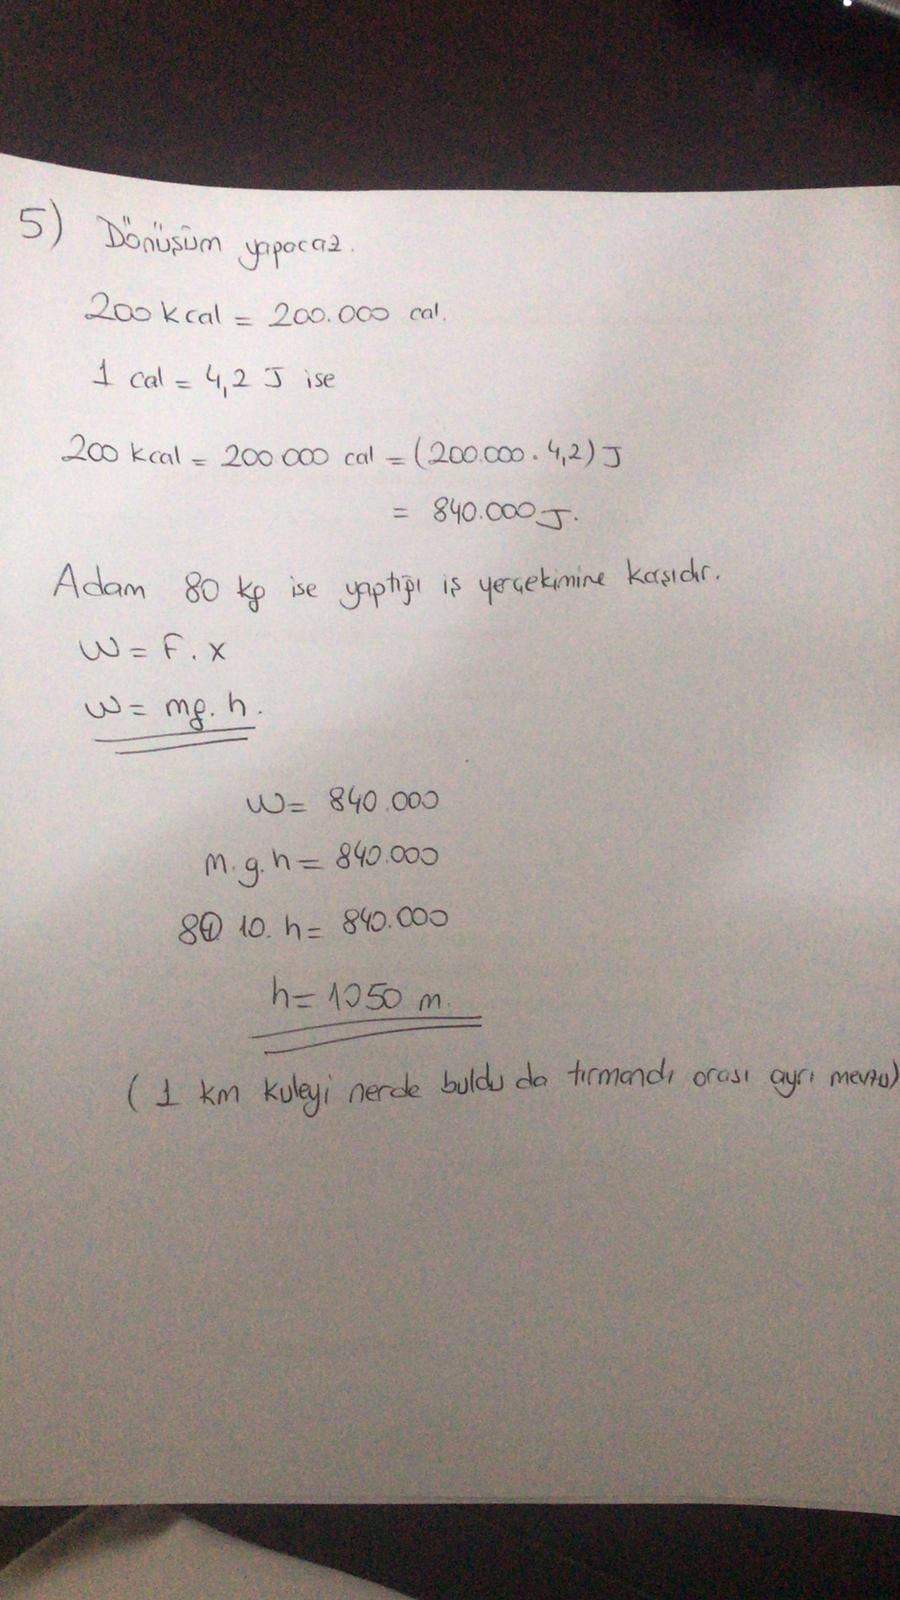 5) Dönüşüm yapıcaz.
200 kcal = 200.000 cal.
1 cal = 4,2 J ise
200 kcal = 200 000 cal = (200.000 . 4,2) J
= 840.000 J.
Adam 80 kg ise yaptığı iş yerçekimine karşıdır.
W = F . x
W = mg. h.
W = 840.000
m.g.h = 840.000
80 10. h = 840.000
h = 1050 m.
( 1 km kuleyi nerde buldu da tırmandı orası ayrı mevzu)